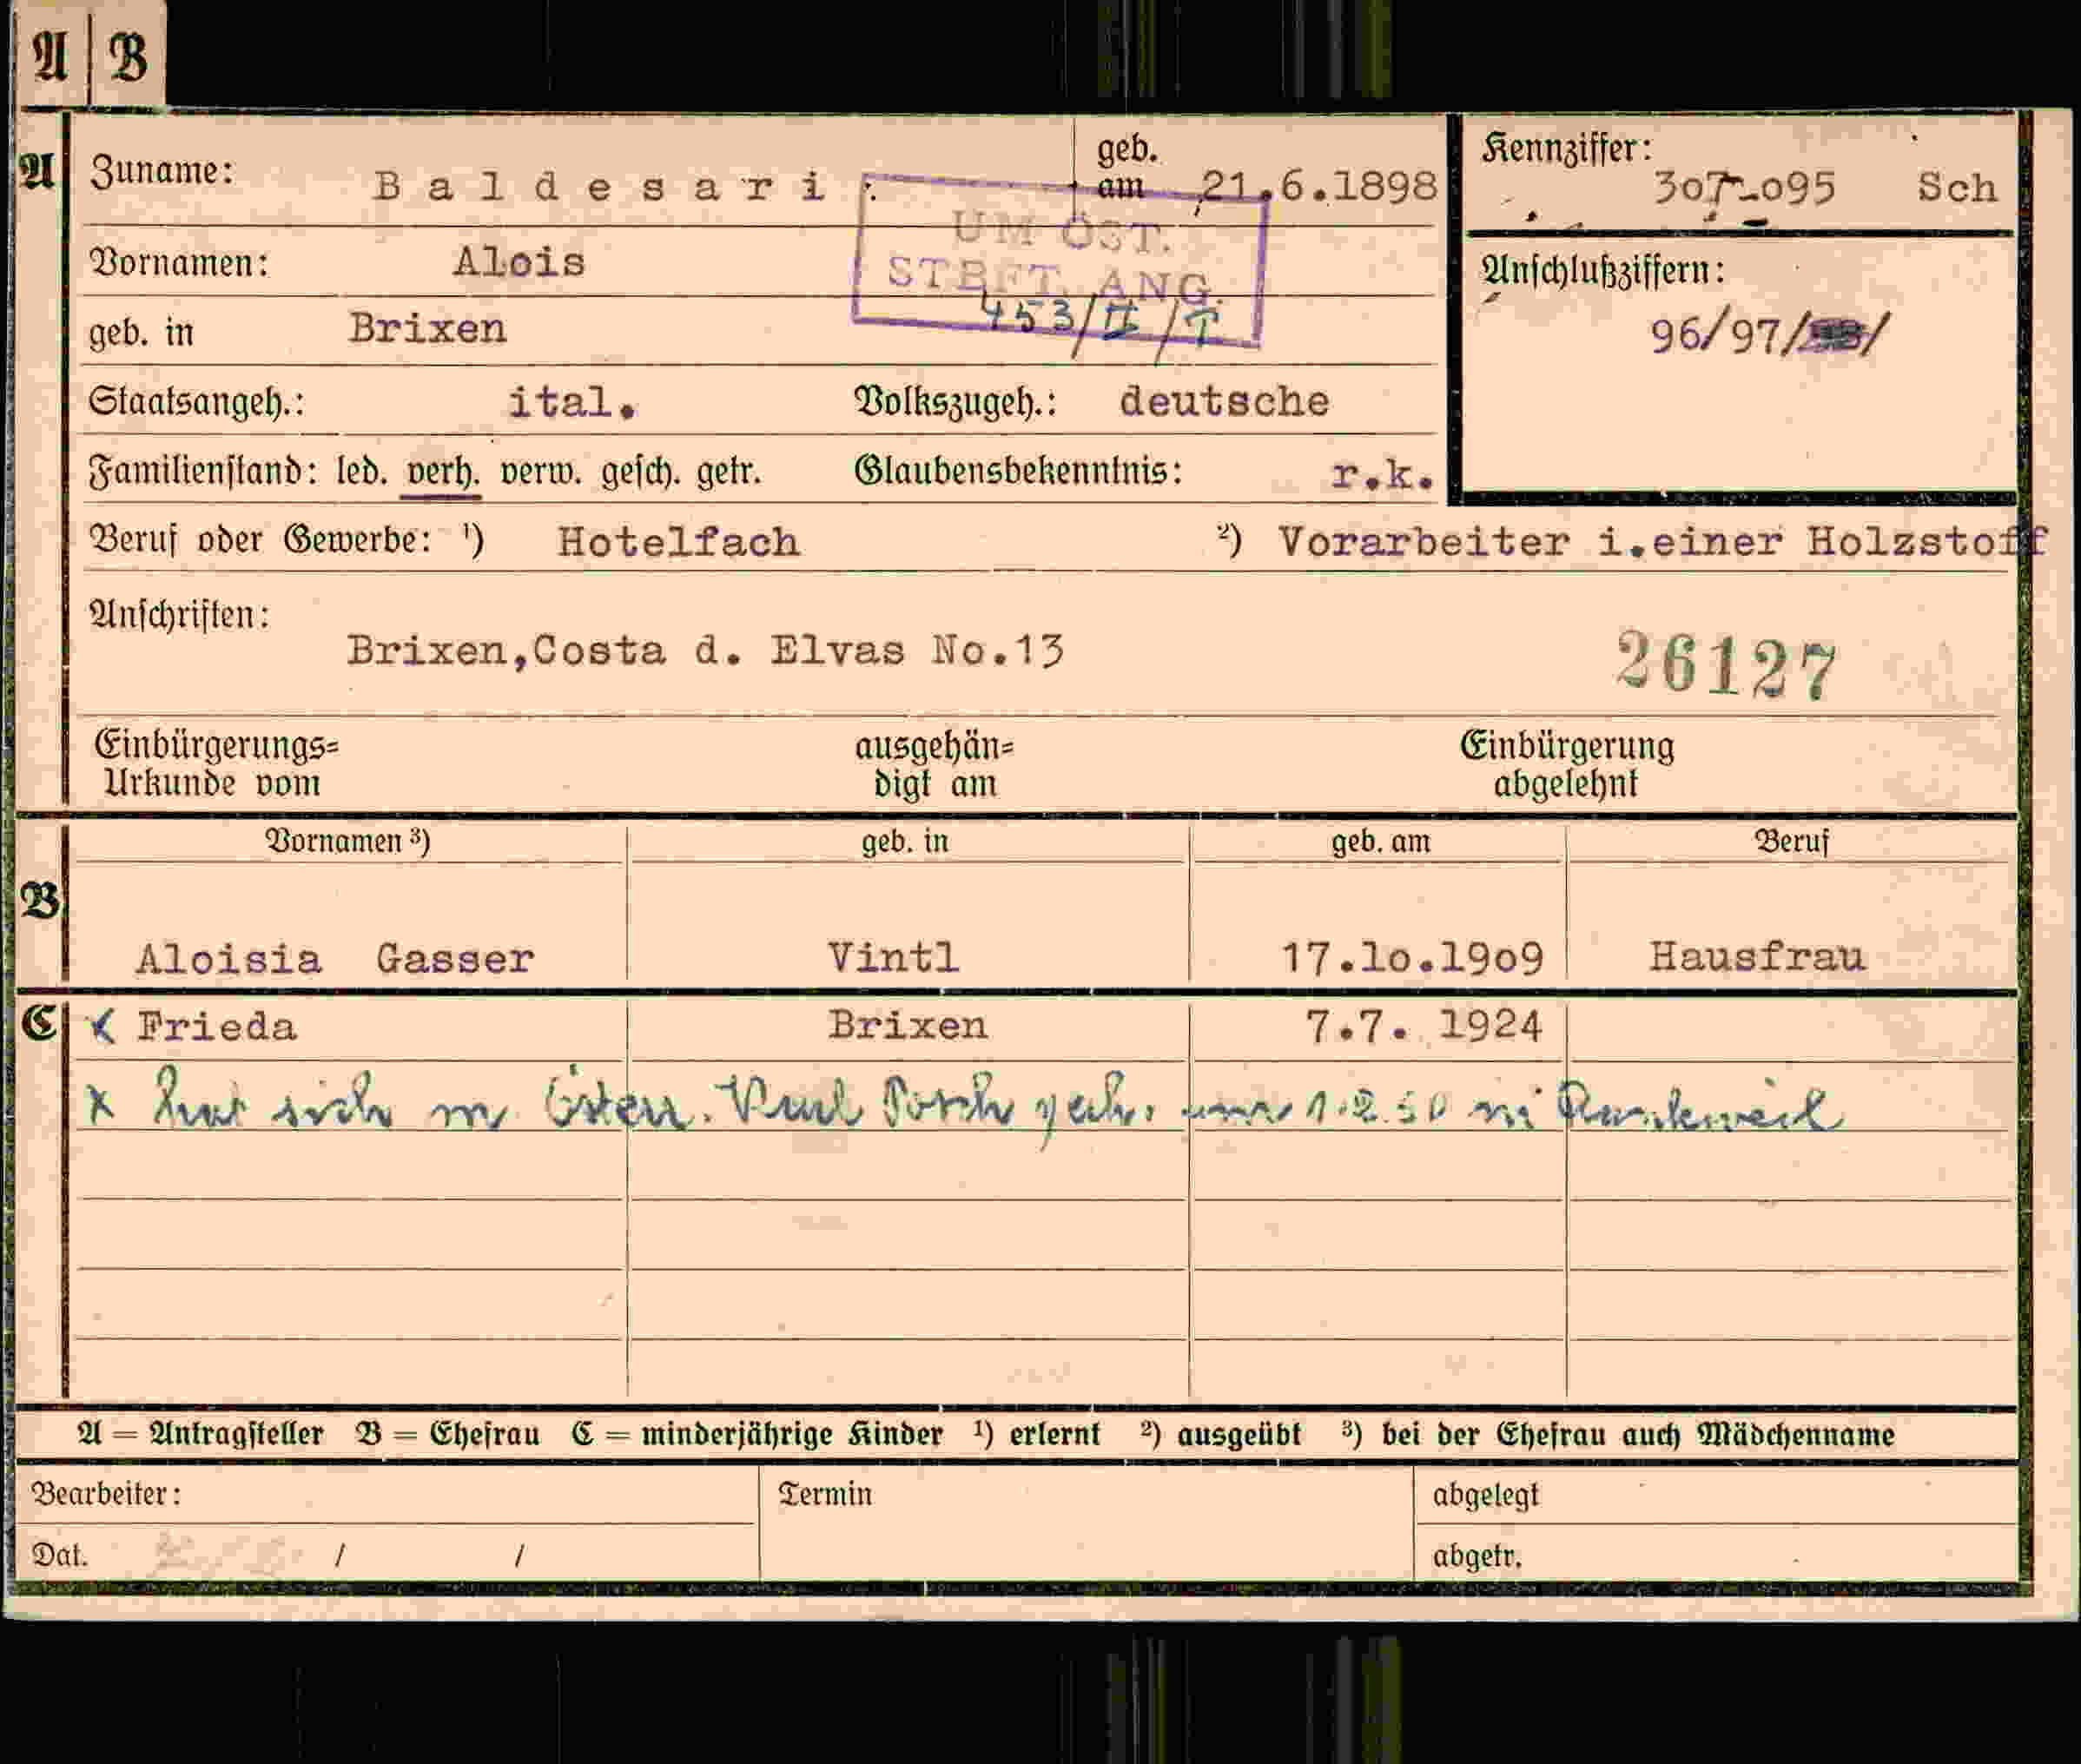 A B
A Zuname: Baldesari geb. am 21.6.1898
Kennziffer: 307-095 Sch
UM ÖST.
STBFT. ANG.
453/II/T
Vornamen: Alois
Anschlußziffern:
96/97/
geb. in Brixen
Staatsangeh.: ital. Volkszugeh.: deutsche
Familienstand: led. verh. verw. gesch. getr. Glaubensbekenntnis: r.k.
Beruf oder Gewerbe: ¹) Hotelfach ²) Vorarbeiter i.einer Holzstoff
Anschriften:
Brixen,Costa d. Elvas No.13
26127
Einbürgerungs= ausgehän= Einbürgerung
Urkunde vom digt am abgelehnt
Vornamen ³) geb. in geb. am Beruf
B
Aloisia Gasser Vintl 17.10.1909 Hausfrau
C x Frieda Brixen 7.7. 1924
x hat sich m. Österr. 1.2.50 in Rankweil
A = Antragsteller B = Ehefrau C = minderjährige Kinder ¹) erlernt ²) ausgeübt ³) bei der Ehefrau auch Mädchenname
Bearbeiter: Termin abgelegt
Dat. / / abgetr.